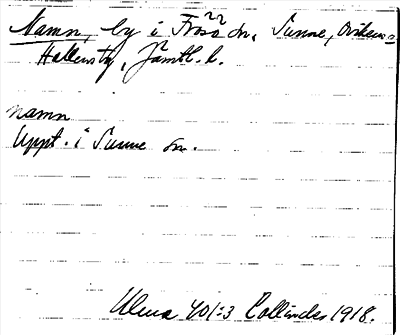 Namn, by i Frösö sn, Sunne,
Hallens ty, Jämtl. l.
namn
Uppt. i Sunne sn.
Ulma 401:3 Collinder 1918.